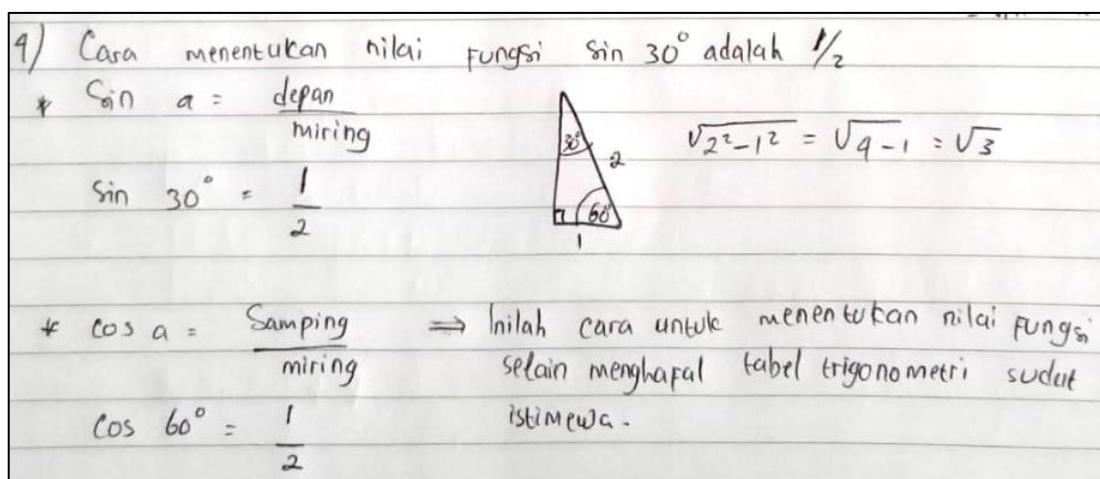 4) Cara menentukan nilai fungsi sin 30° adalah 1/2
* Sin a = depan/miring
sin 30° = 1/2
30°
2
60°
1
√2²-1² = √4-1 = √3
* cos a = Samping/miring
cos 60° = 1/2
⇒ Inilah cara untuk menentukan nilai fungsi
selain menghafal tabel trigonometri sudut
istimewa.